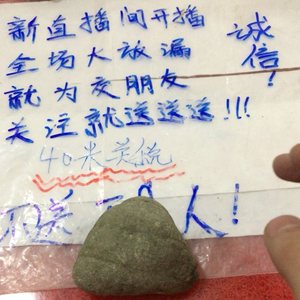 新直播间开播
全场大放漏
就为交朋友
关注就送送送!!!
诚信!
40米关悦
人!